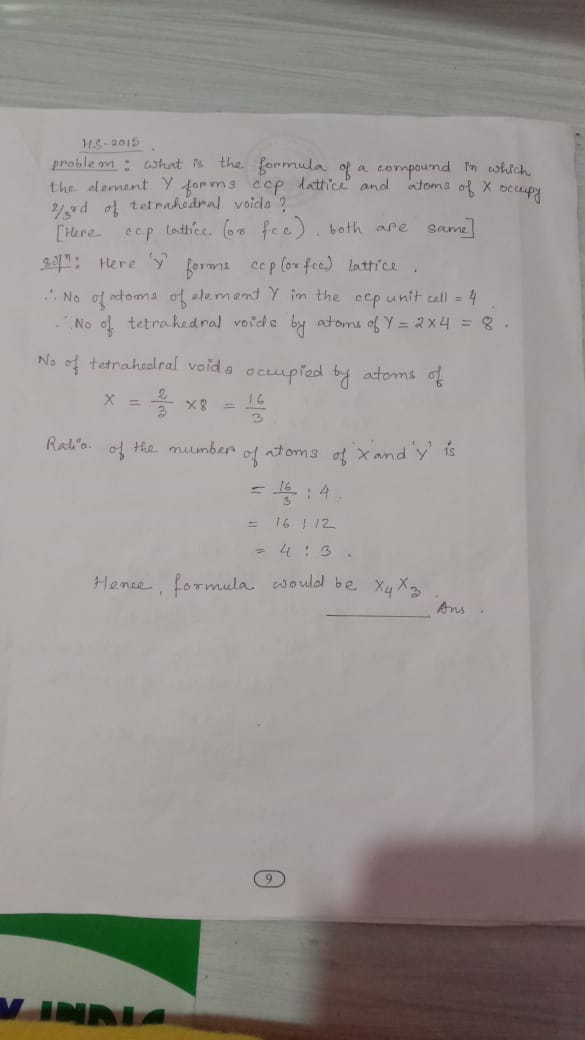 H.S-2015.
problem : what is the formula of a compound in which
the element Y forms ccp lattice and atoms of X occupy
2/3rd of tetrahedral voids ?
[Here ccp lattice (or fcc). both are same]
Solⁿ: Here 'y' forms ccp (or fcc) lattice.
∴ No of atoms of element Y in the ccp unit cell = 4
∴ No of tetrahedral voids by atoms of Y = 2×4 = 8.
No of tetrahedral voids occupied by atoms of
X = 2/3 ×8 = 16/3
Ratio. of the number of atoms of 'x' and 'y' is
= 16/3 : 4.
= 16 : 12
= 4 : 3.
Hence, formula would be X₄X₃.
Ans.
9